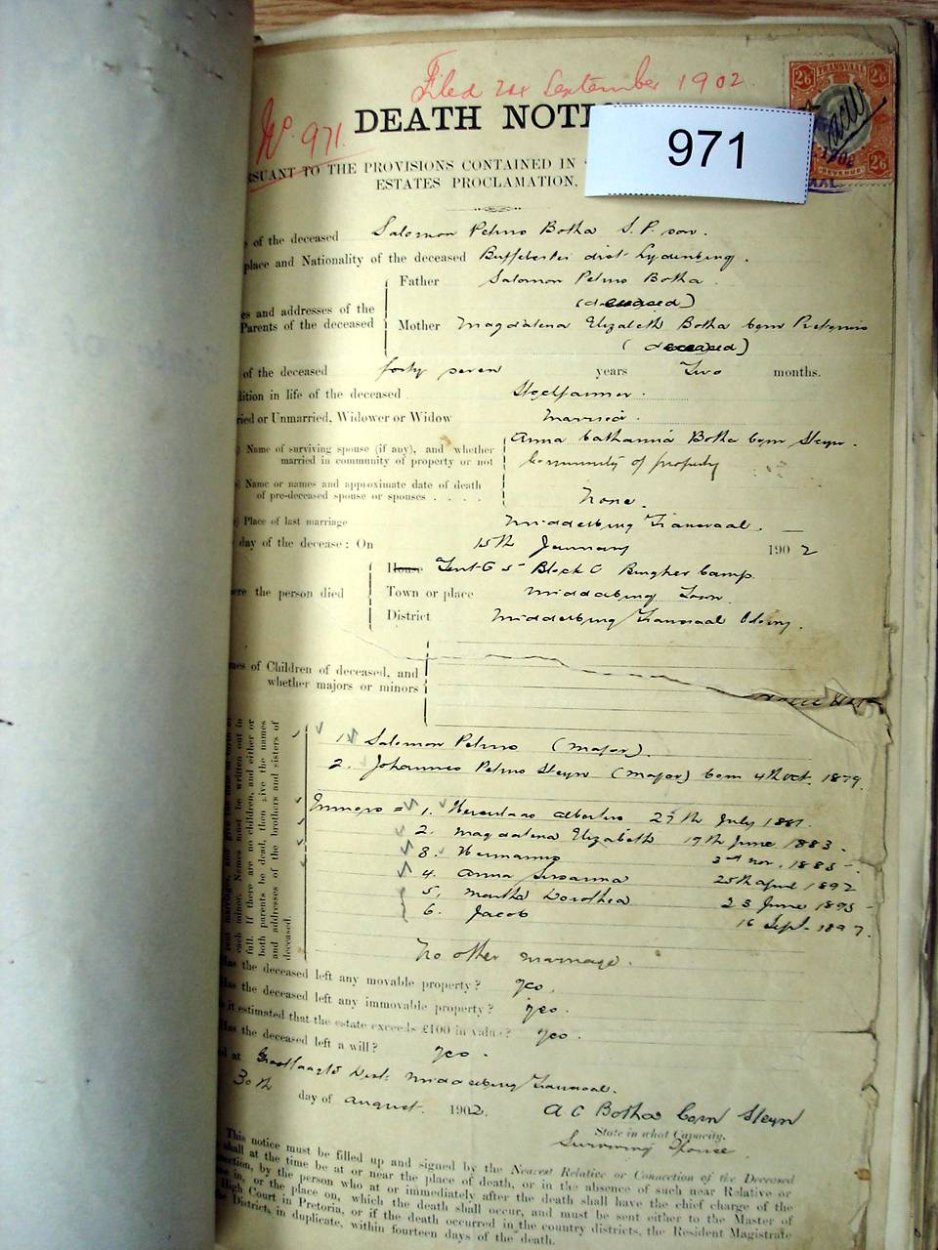 Filed September 1902.
No. 971
DEATH NOTI
971
2/6 TRANSVAAL 2/6
2/6 REVENUE 2/6
RSUANT TO THE PROVISIONS CONTAINED IN
ESTATES PROCLAMATION,
of the deceased Salomon Petrus Botha S.P. son.
place and Nationality of the deceased dist Lydenburg.
es and addresses of the
Parents of the deceased
Father Salomon Petrus Botha
(deceased)
Mother Magdalena Elizabeth Botha born Pretorius
(deceased)
of the deceased forty seven years Two months.
dition in life of the deceased Stockfarmer.
ried or Unmarried, Widower or Widow Married.
Name of surviving spouse (if any), and whether
married in community of property or not
Anna Catharina Botha born Steyn.
Community of property
Name or names and approximate date of death
of pre-deceased spouse or spouses . . . .
None.
Place of last marriage Middelburg Transvaal.
day of the decease: On 15th January 1902
ere the person died
House Tent 6 Block C Burgher Camp.
Town or place Middelburg Town
District Middelburg Transvaal Colony.
mes of Children of deceased, and
whether majors or minors
1. Salomon Petrus (Major).
2. Johannes Petrus Steyn (Major) born 4th Oct. 1879.
1. Hercules Albertus July 1881.
2. Magdalena Elizabeth 19th June 1883.
3. Hermanus 2nd Nov. 1885
4. Anna Susanna 25th April 1892
5. Martha Dorothea 23 June 1895
6. Jacob 16 Sept. 1897.
full. If there are no children, and either or
both parents be dead, then give the names
and addresses of the brothers and sisters of
deceased.
No other marriage.
Has the deceased left any movable property? Yes.
Has the deceased left any immovable property? Yes.
is it estimated that the estate exceeds £100 in value? Yes.
Has the deceased left a will? Yes.
at Dist: Middelburg Transvaal.
30th day of August 1902.
A C Botha born Steyn
State in what Capacity.
Surviving Spouse.
This notice must be filled up and signed by the Nearest Relative or Connection of the Deceased
shall at the time be at or near the place of death, or in the absence of such near Relative or
nection, by the person who at or immediately after the death shall have the chief charge of the
e in, or the place on, which the death shall occur, and must be sent either to the Master of
High Court in Pretoria, or if the death occurred in the country districts, the Resident Magistrate
the District, in duplicate, within fourteen days of the death.